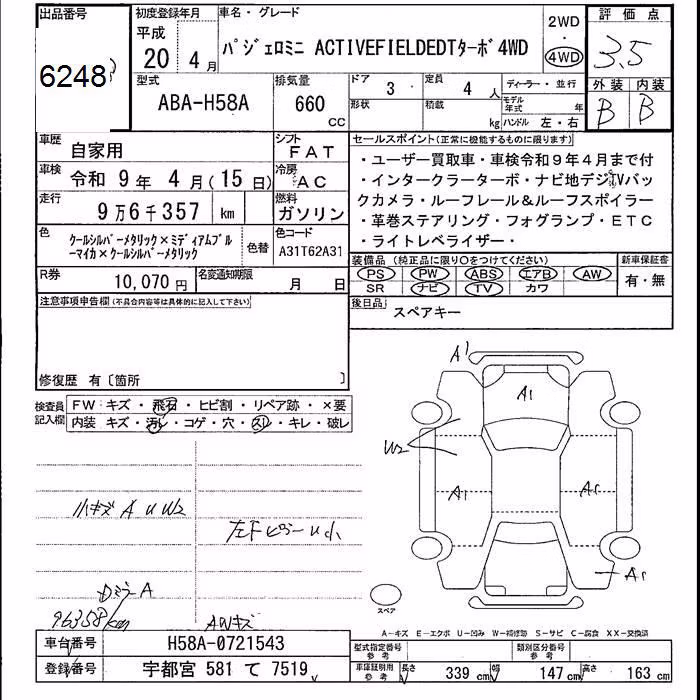 出品番号
6248
初度登録年月
平成
20 年 4 月
車名・グレード
パジェロミニ ACTIVEFIELDEDTターボ4WD
2WD
・
4WD
評価点
3.5
外装 内装
B B
型式
ABA-H58A
排気量
660
CC
ドア 3
定員 4 人
形状
積載 kg
ディーラー・並行
モデル年式 年
ハンドル 左・右
車歴
自家用
シフト
FAT
車検
令和 9 年 4 月 (15 日)
冷房
AC
走行
9万6千357 km
燃料
ガソリン
色
クールシルバーメタリック×ミディアムブル
ーマイカ×クールシルバーメタリック
色替
色コード
A31T62A31
R券
10,070 円
名変通知期限 月 日
セールスポイント(正常に機能するものに限ります)
・ユーザー買取車・車検令和9年4月まで付
・インタークラーターボ・ナビ地デジTVバッ
クカメラ・ルーフレール&ルーフスポイラー
・革巻ステアリング・フォグランプ・ETC
・ライトレベライザー・
装備品 (純正品に限り○をつけてください)
PS PW ABS エアB AW
SR ナビ TV カワ
新車保証書
有・無
後日品
スペアキー
注意事項申告欄(不具合内容等は具体的に記入して下さい)
修復歴 有〔箇所 〕
検査員
記入欄
FW キズ・飛石・ヒビ割・リペア跡・×要
内装 キズ・汚レ・コゲ・穴・スレ・キレ・破レ
小キズ A U W2
左Fピラー U小
DミラーA
96358km
AWキズ
A1
A1
W2
A1
A1
A1
スペア
A-キズ E-エクボ U-凹み W-補修跡 S-サビ C-腐食 XX-交換済
車台番号
H58A-0721543
登録番号
宇都宮 581 て 7519
型式指定番号
参考
類別区分番号
参考
車庫証明用
参考
長さ 339 cm 幅 147 cm 高さ 163 cm